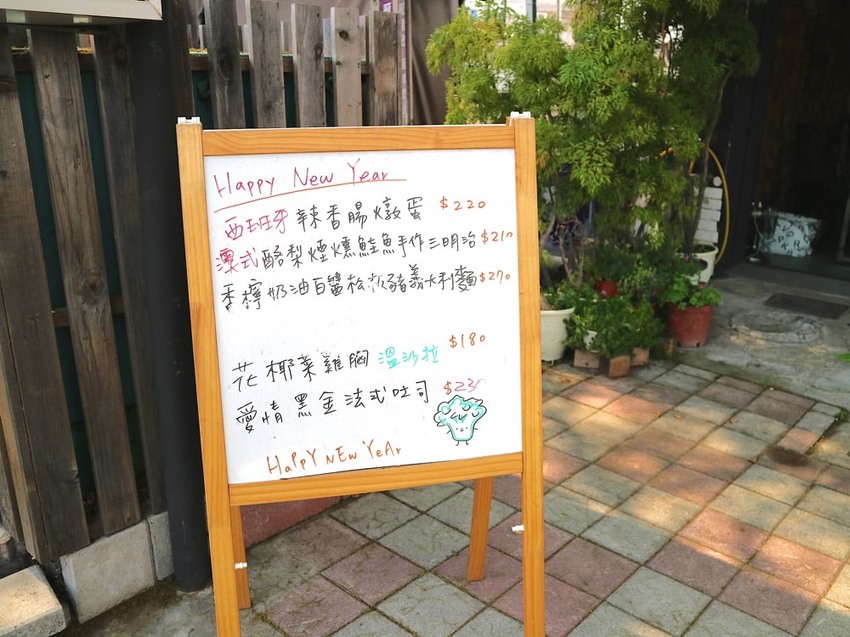 Happy New Year
西班牙辣香腸燉蛋 $220
澳式酪梨煙燻鮭魚手作三明治 $210
香檸奶油白醬松阪豬義大利麵 $270
花椰菜雞胸溫沙拉 $180
愛情黑金法式吐司
HaPPY NEW YeAr